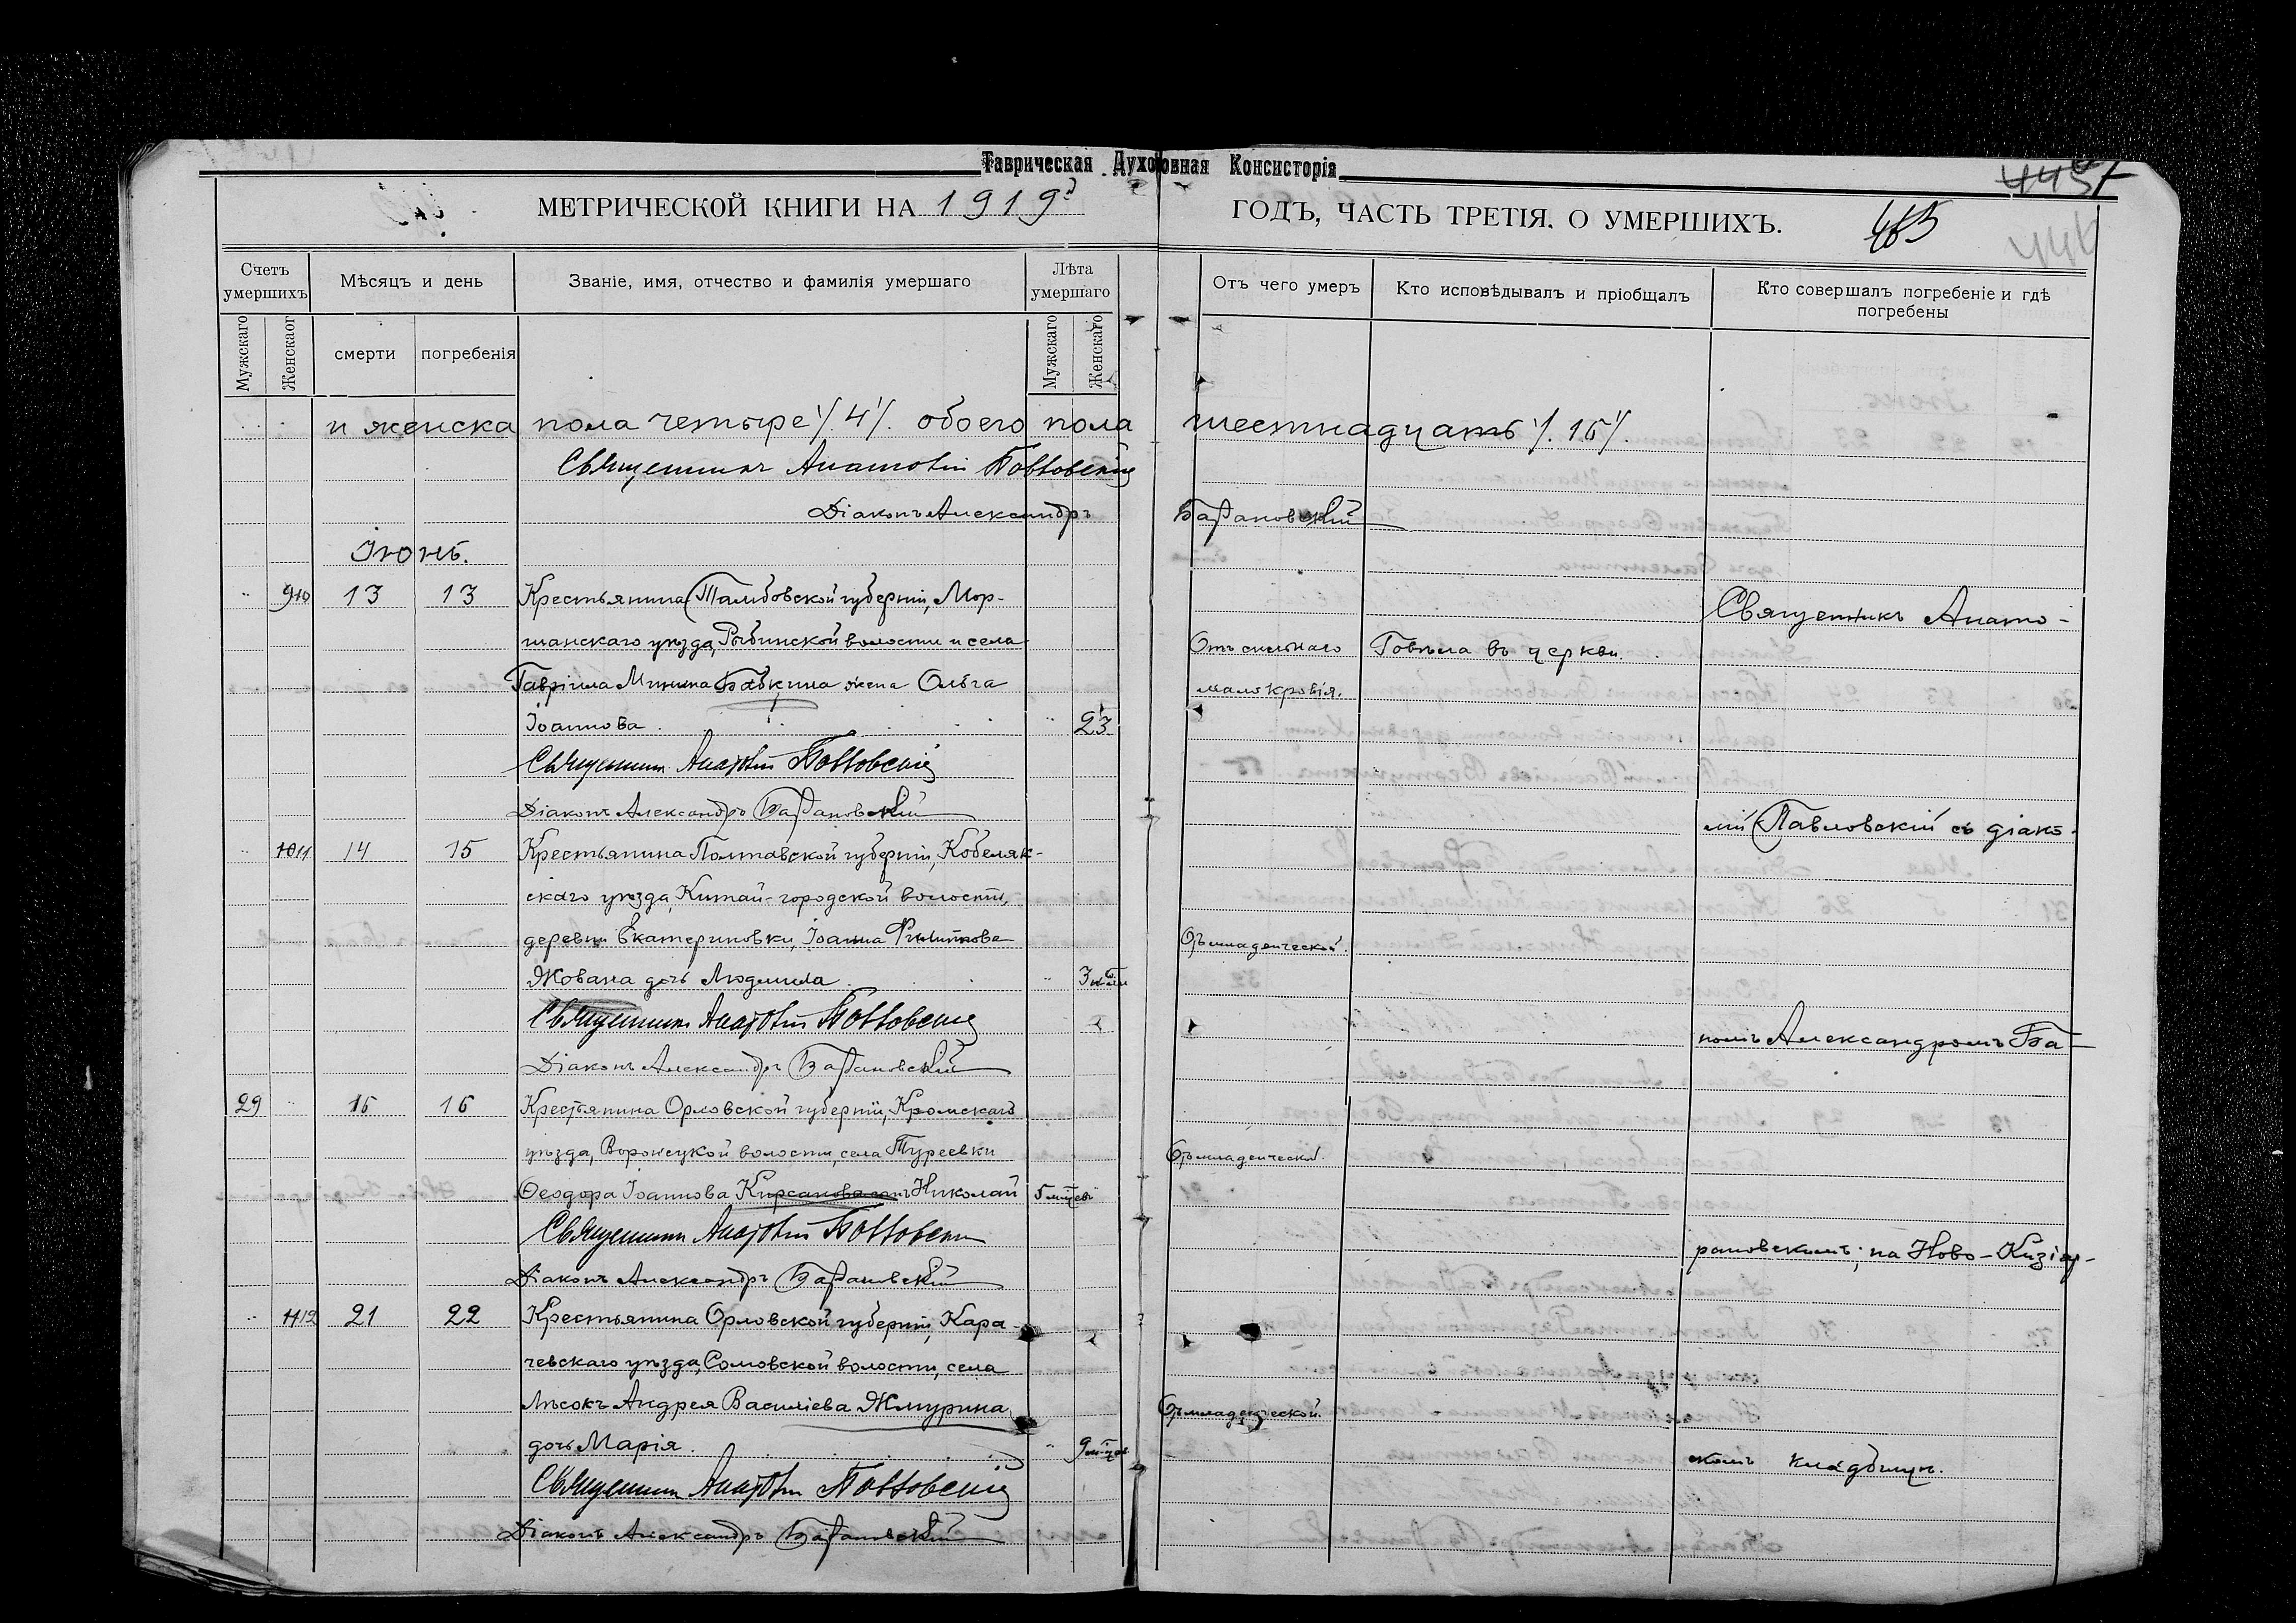 Таврическая Духовная Консисторія
МЕТРИЧЕСКОЙ КНИГИ НА 1919й ГОДЪ, ЧАСТЬ ТРЕТІЯ. О УМЕРШИХЪ.
Счетъ умершихъ
Мѣсяцъ и день
Званіе, имя, отчество и фамилія умершаго
Лѣта умершаго
Отъ чего умеръ
Кто исповѣдывалъ и пріобщалъ
Кто совершалъ погребеніе и гдѣ погребены
Мужскаго
Женскаог
смерти
погребенія
Мужскаго
Женскаго
и женска пола четыре /4/. обоего пола шестнадцать /.16/.
Священникъ Анатолій Павловскій
Діаконъ Александръ Барановскій
Іюнь.
13 13 Крестьянина Тамбовской губерніи, Мор-
шанскаго уѣзда, Рыбинской волости и села
Гавріила Минина Бабкина жена Ольга
Іоаннова 23
Отъ сильнаго
малокровія.
Говѣла въ церкви.
Священникъ Анато-
Священникъ Анатолій Павловскій
Діаконъ Александръ Барановскій
лій Павловскій съ діако-
14 15 Крестьянина Полтавской губерніи, Кобеляк-
скаго уѣзда, Китай-городской волости,
деревни Екатериновки, Іоанна Филиппова
Жована дочь Людмила
Отъ младенческой.
Священникъ Анатолій Павловскій
Діаконъ Александръ Барановскій
номъ Александромъ Ба-
29 15 16 Крестьянина Орловской губерніи, Кромскаго
уѣзда, Воронецкой волости, села Туреевки
Ѳеодора Іоаннова Кирсанова сынъ Николай
5 мѣсяцевъ
Отъ младенческой.
Священникъ Анатолій Павловскій
Діаконъ Александръ Барановскій
рановскимъ; на Ново-Кизіяр-
21 22 Крестьянина Орловской губерніи, Кара-
чевскаго уѣзда, Сомовской волости, села
Лѣсокъ Андрея Василіева Жмурина
дочь Марія. 9 мѣсяц.
Отъ младенческой.
Священникъ Анатолій Павловскій
Діаконъ Александръ Барановскій
скомъ кладбищѣ.